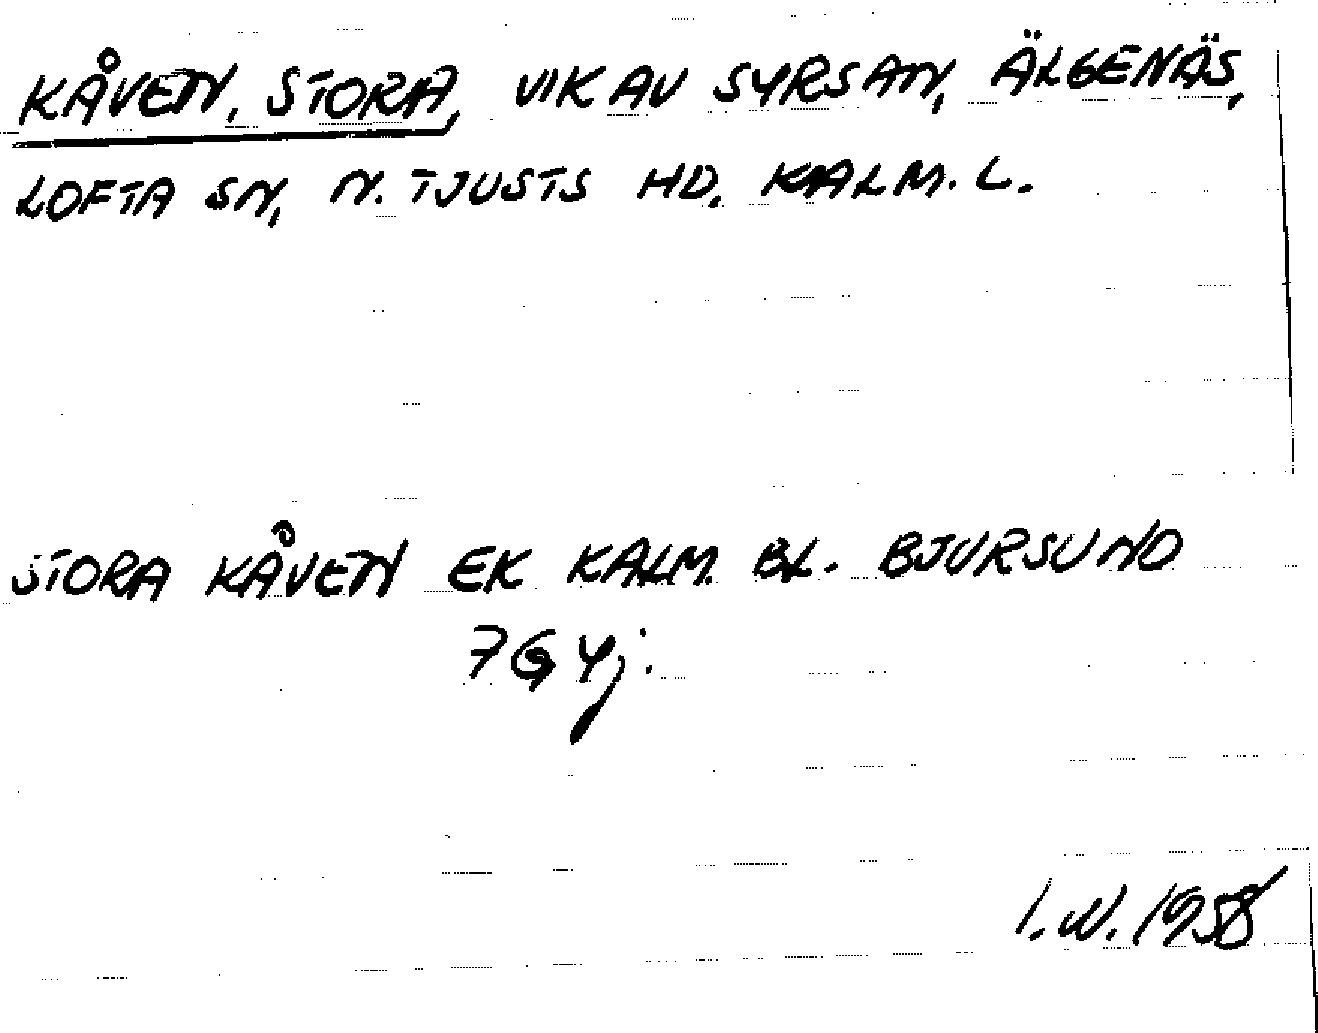 KÅVEN, STORA, VIK AV SYRSAN, ÄLGENÄS,
LOFTA SN, N. TJUSTS HD. KALM. L.
STORA KÅVEN EK KALM. BL. BJURSUND
7G4j:
I.W. 1958